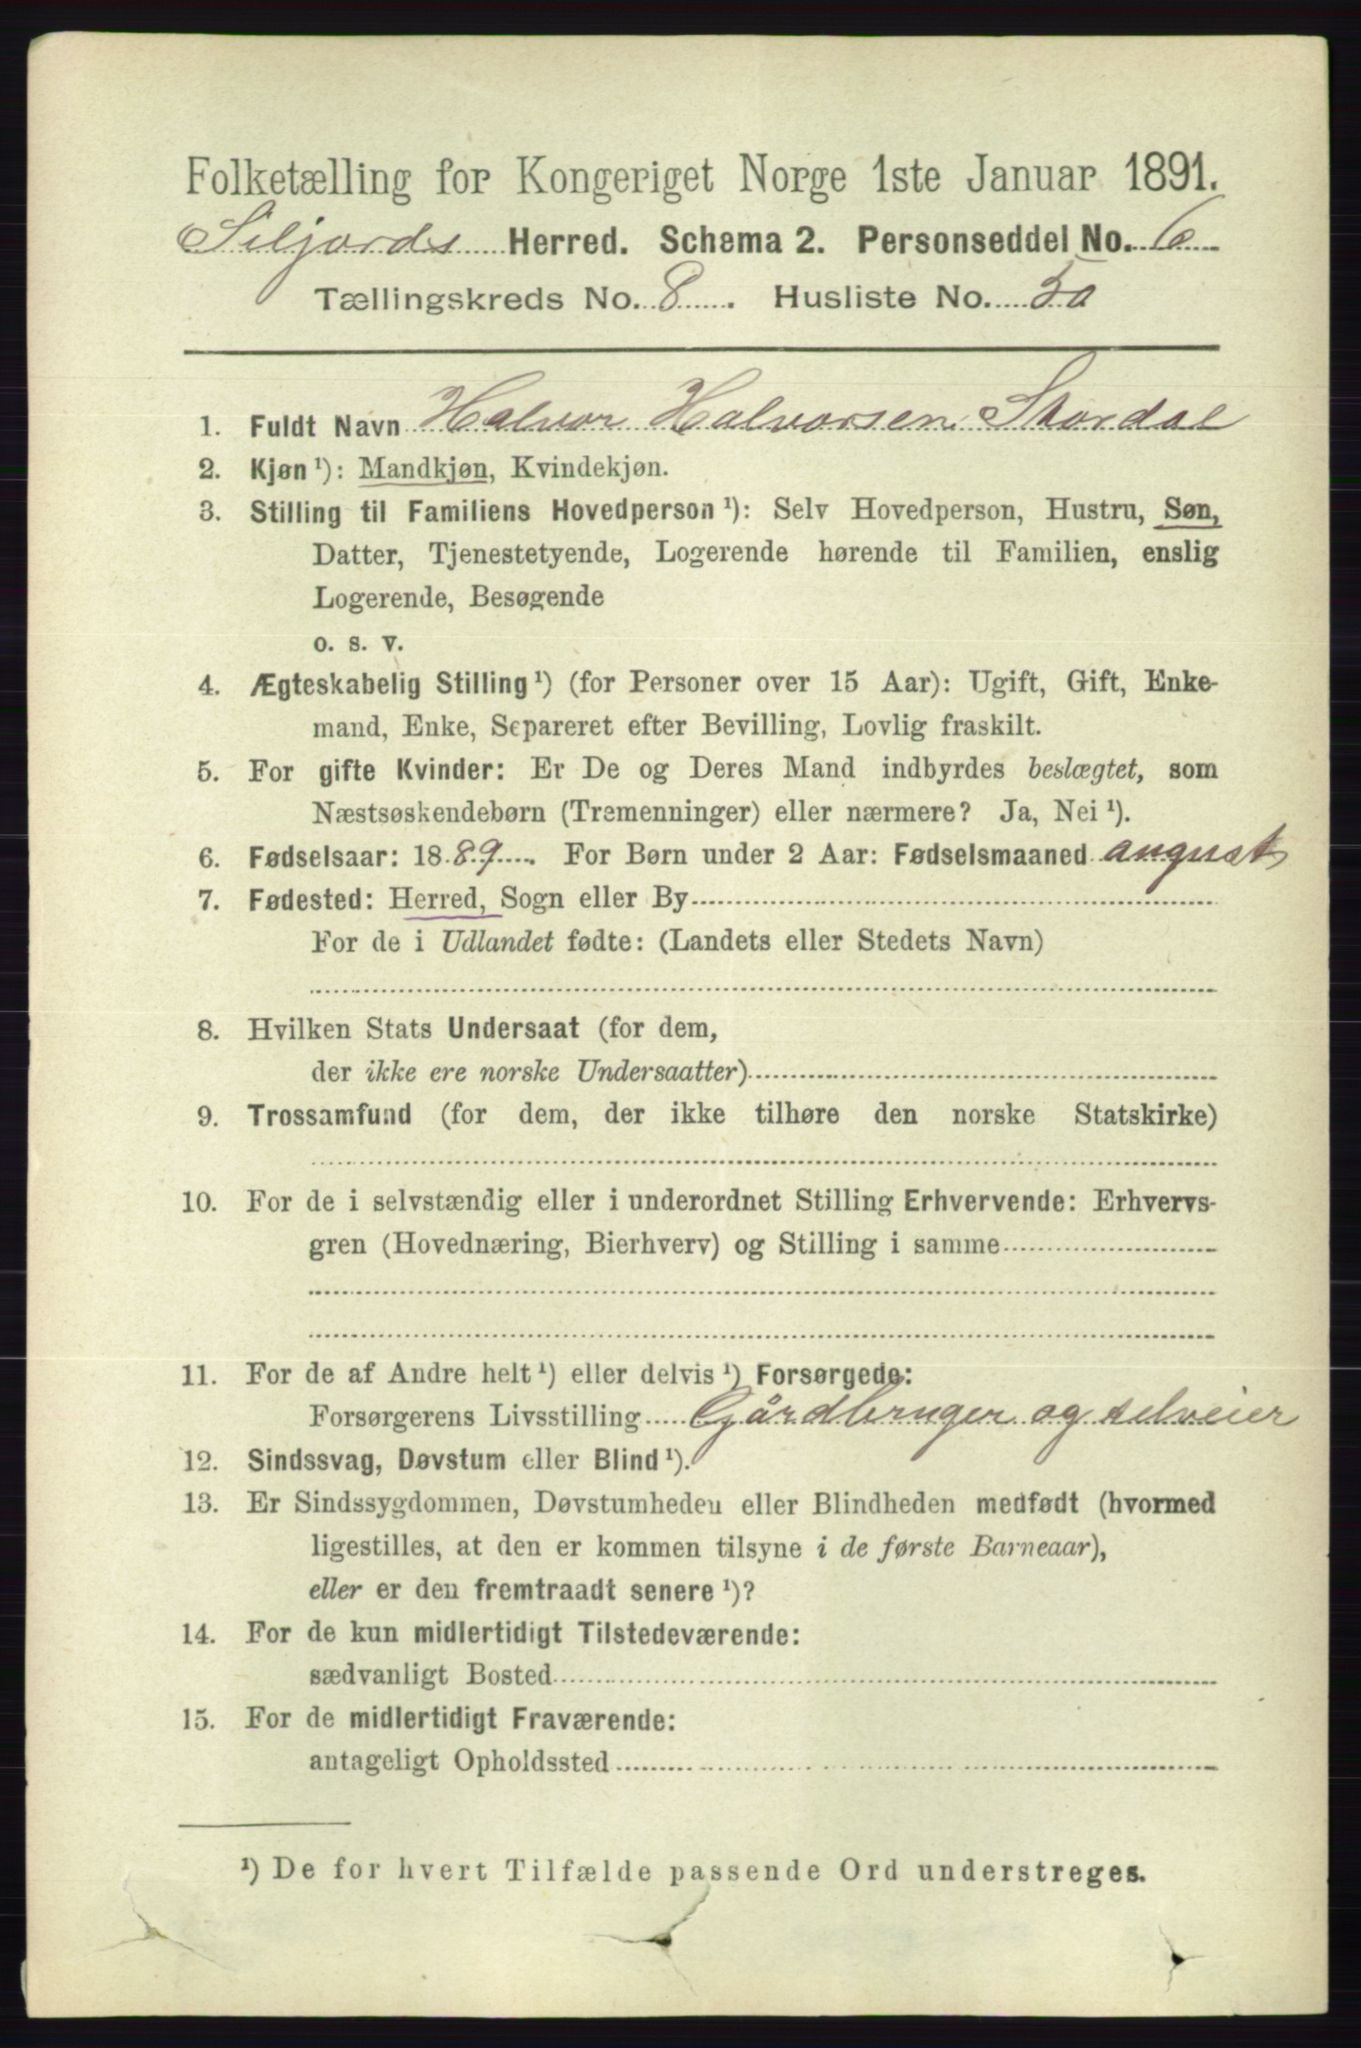 Folketælling for Kongeriget Norge 1ste Januar 1891.
Siljords Herred. Schema 2. Personseddel No. 6
Tællingskreds No. 8. Husliste No. 50
1. Fuldt Navn Halvor Halvorsen Skordal
2. Kjøn ¹): Mandkjøn, Kvindekjøn.
3. Stilling til Familiens Hovedperson ¹): Selv Hovedperson, Hustru, Søn,
Datter, Tjenestetyende, Logerende hørende til Familien, enslig
Logerende, Besøgende
o. s. v.
4. Ægteskabelig Stilling ¹) (for Personer over 15 Aar): Ugift, Gift, Enke-
mand, Enke, Separeret efter Bevilling, Lovlig fraskilt.
5. For gifte Kvinder: Er De og Deres Mand indbyrdes beslægtet, som
Næstsøskendebørn (Tremenninger) eller nærmere? Ja, Nei ¹).
6. Fødselsaar: 1889. For Børn under 2 Aar: Fødselsmaaned august
7. Fødested: Herred, Sogn eller By
For de i Udlandet fødte: (Landets eller Stedets Navn)
8. Hvilken Stats Undersaat (for dem,
der ikke ere norske Undersaatter)
9. Trossamfund (for dem, der ikke tilhøre den norske Statskirke)
10. For de i selvstændig eller i underordnet Stilling Erhvervende: Erhvervs-
gren (Hovednæring, Bierhverv) og Stilling i samme
11. For de af Andre helt ¹) eller delvis ¹) Forsørgede:
Forsørgerens Livsstilling Gårdbruger og selveier
12. Sindssvag, Døvstum eller Blind ¹).
13. Er Sindssygdommen, Døvstumheden eller Blindheden medfødt (hvormed
ligestilles, at den er kommen tilsyne i de første Barneaar),
eller er den fremtraadt senere ¹)?
14. For de kun midlertidigt Tilstedeværende:
sædvanligt Bosted
15. For de midlertidigt Fraværende:
antageligt Opholdssted
¹) De for hvert Tilfælde passende Ord understreges.